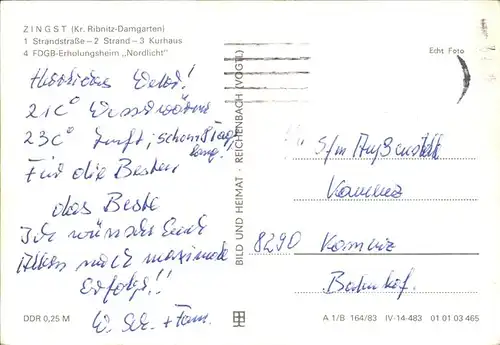 ZINGST (Kr. Ribnitz-Damgarten)
1 Strandstraße – 2 Strand – 3 Kurhaus
4 FDGB-Erholungsheim „Nordlicht"
Echt Foto
21C°
23C° Luft, schon Tage
lang!
Für die Besten
das Beste
Ich wünsche Euch
Allen noch maximale
Erfolge!!
W. Sch. + Fam.
BILD UND HEIMAT · REICHENBACH (VOGTL)
Außenstelle
Kamenz
8290 Kamenz
Bahnhof.
DDR 0,25 M
A 1/B 164/83 IV-14-483 01 01 03 465